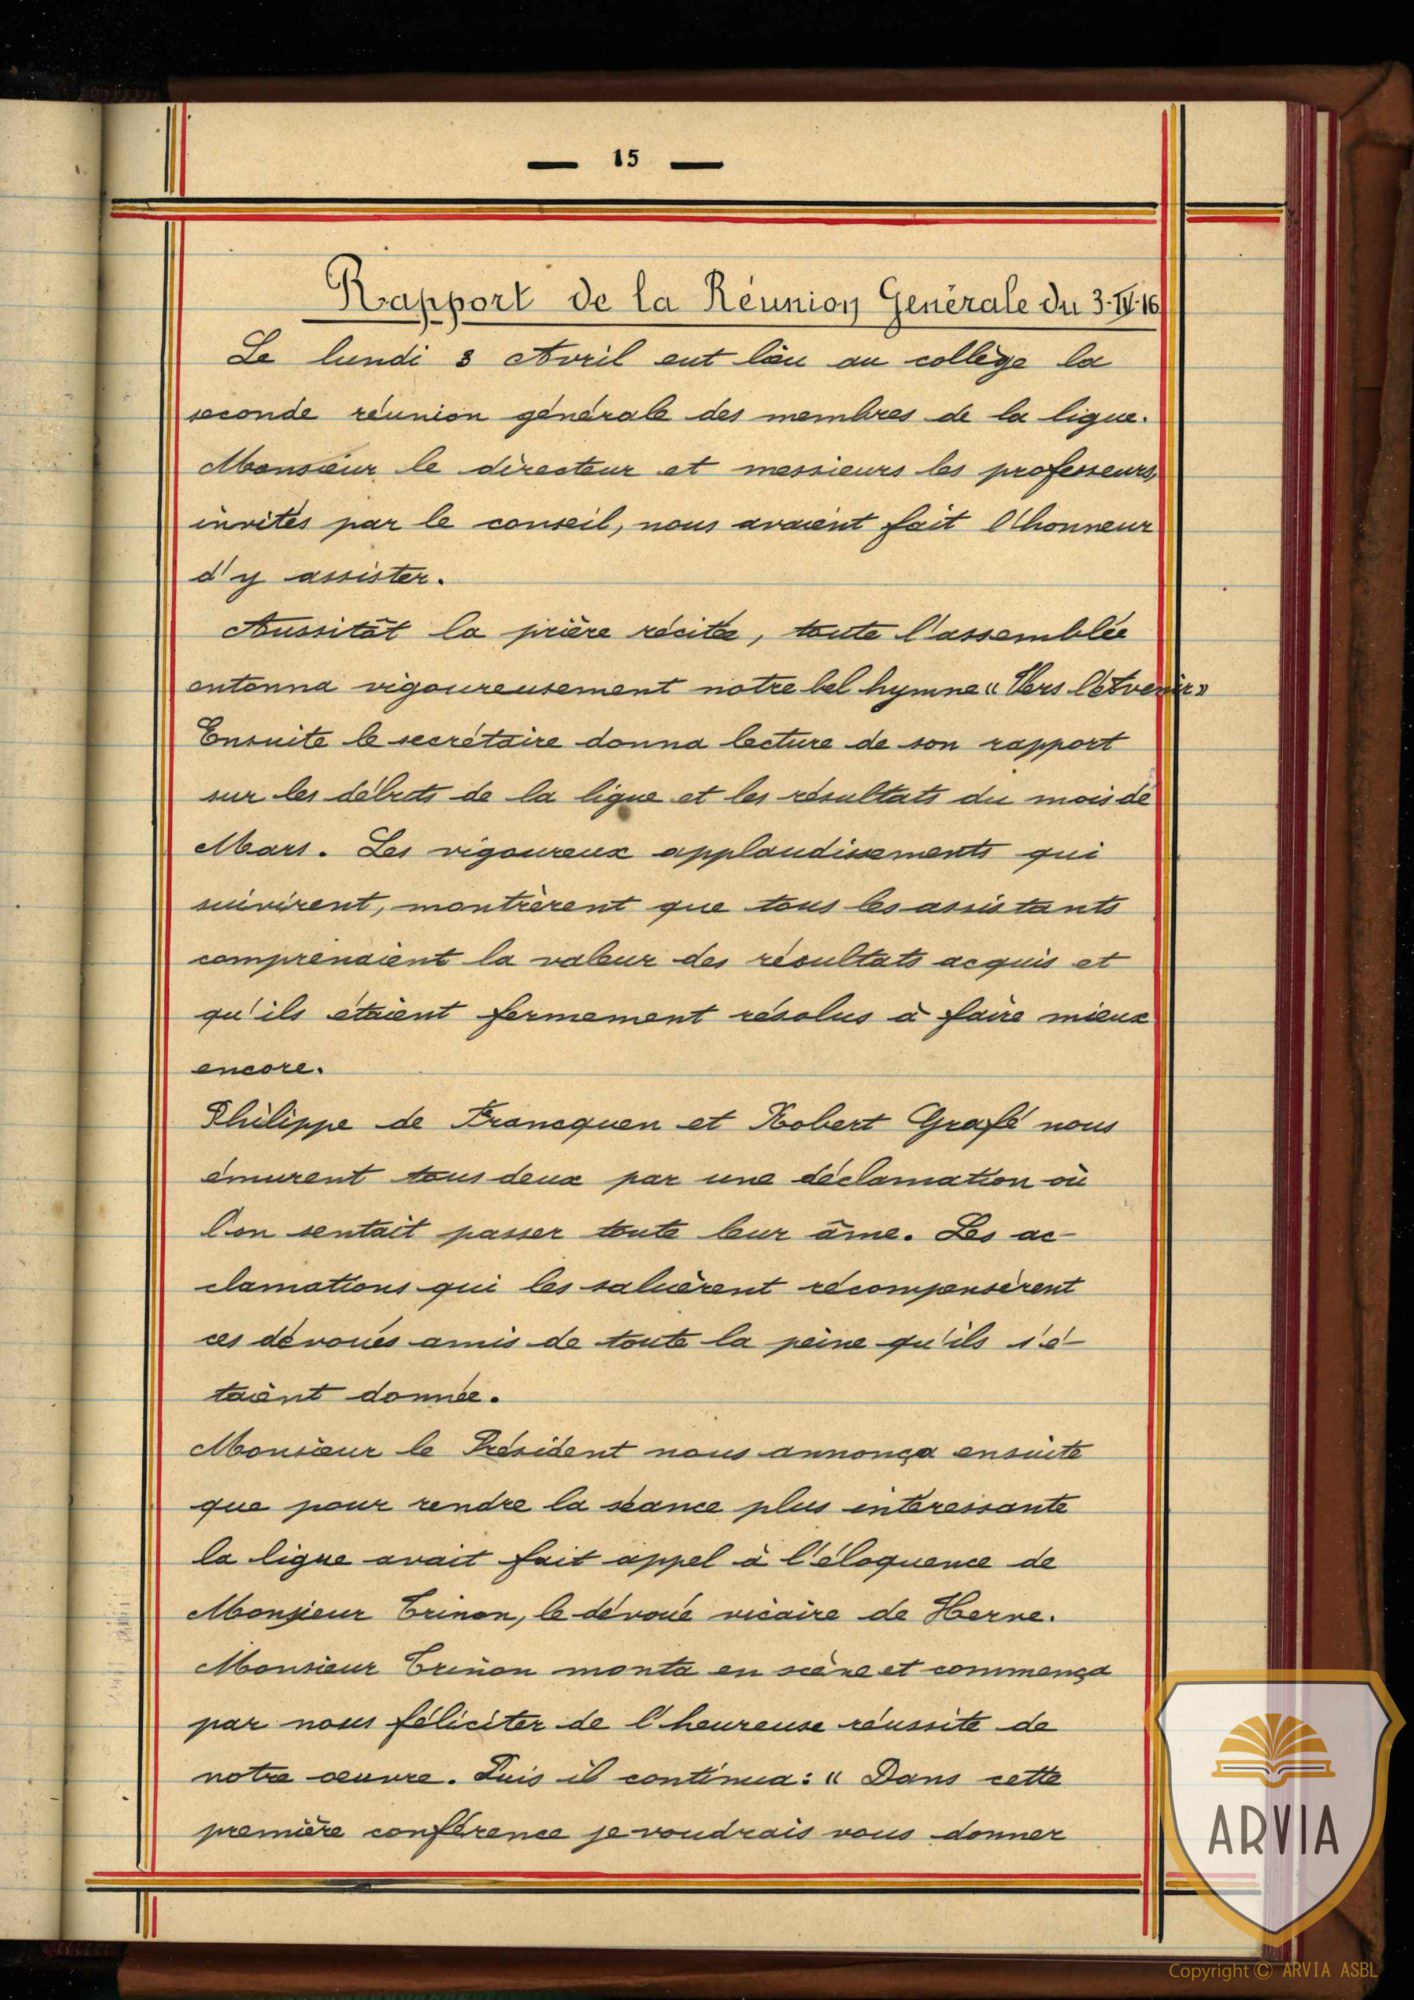 — 15 —
Rapport de la Réunion Générale du 3-IV-16
Le lundi 3 Avril eut lieu au collège la
seconde réunion générale des membres de la ligue.
Monsieur le directeur et messieurs les professeurs,
invités par le conseil, nous avaient fait l'honneur
d'y assister.
Aussitôt la prière récitée, toute l'assemblée
entonna vigoureusement notre bel hymne « Vers l'Avenir »
Ensuite le secrétaire donna lecture de son rapport
sur les débuts de la ligue et les résultats du mois de
Mars. Les vigoureux applaudissements qui
suivirent, montrèrent que tous les assistants
comprenaient la valeur des résultats acquis et
qu'ils étaient fermement résolus à faire mieux
encore.
Philippe de Francquen et Robert Grafé nous
émurent tous deux par une déclamation où
l'on sentait passer toute leur âme. Les ac-
clamations qui les saluèrent récompensèrent
ces dévoués amis de toute la peine qu'ils s'é-
taient donnée.
Monsieur le Président nous annonça ensuite
que pour rendre la séance plus intéressante
la ligue avait fait appel à l'éloquence de
Monsieur Trinon, le dévoué vicaire de Herve.
Monsieur Trinon monta en scène et commença
par nous féliciter de l'heureuse réussite de
notre œuvre. Puis il continua: « Dans cette
première conférence je voudrais vous donner
ARVIA
Copyright © ARVIA ASBL